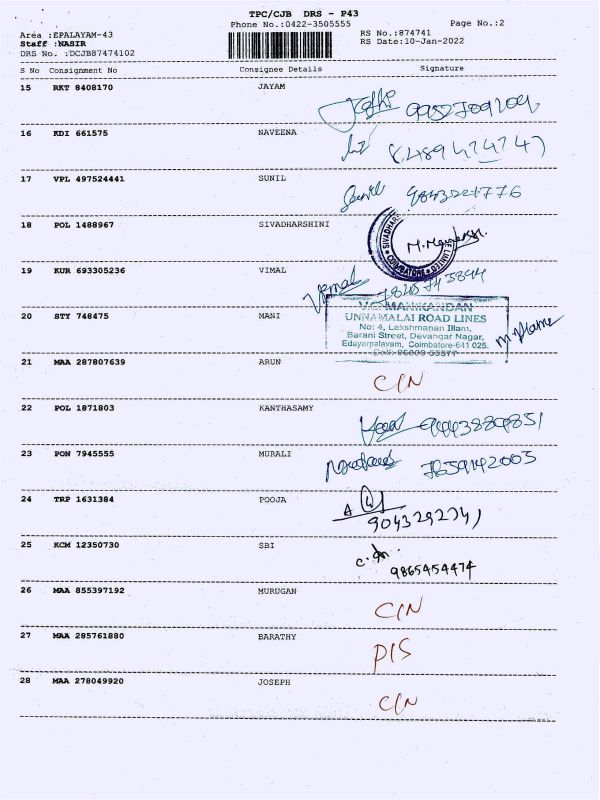 TPC/CJB DRS - P43
Phone No.:0422-3505555
Page No.:2
Area :EPALAYAM-43
RS No.:874741
Staff :NASIR
RS Date:10-Jan-2022
DRS No. :DCJB87474102
S No Consignment No Consignee Details Signature
15 RKT 8408170 JAYAM
16 KDI 661575 NAVEENA
17 VPL 497524441 SUNIL
Sunil
18 POL 1488967 SIVADHARSHINI
SIVADHARS
COIMBATORE
19 KUR 693305236 VIMAL
Vimal
20 STY 748475 MANI
MANIKANDAN
UNNAMALAI ROAD LINES
No: 4, Lakshmanan Illam,
Barani Street, Devangar Nagar,
Edayarpalayam, Coimbatore-641 025.
21 MAA 287807639 ARUN
C/N
22 POL 1871803 KANTHASAMY
23 PON 7945555 MURALI
24 TRP 1631384 POOJA
25 KCM 12350730 SBI
9865454474
26 MAA 855397192 MURUGAN
C/N
27 MAA 285761880 BARATHY
P/S
28 MAA 278049920 JOSEPH
C/N